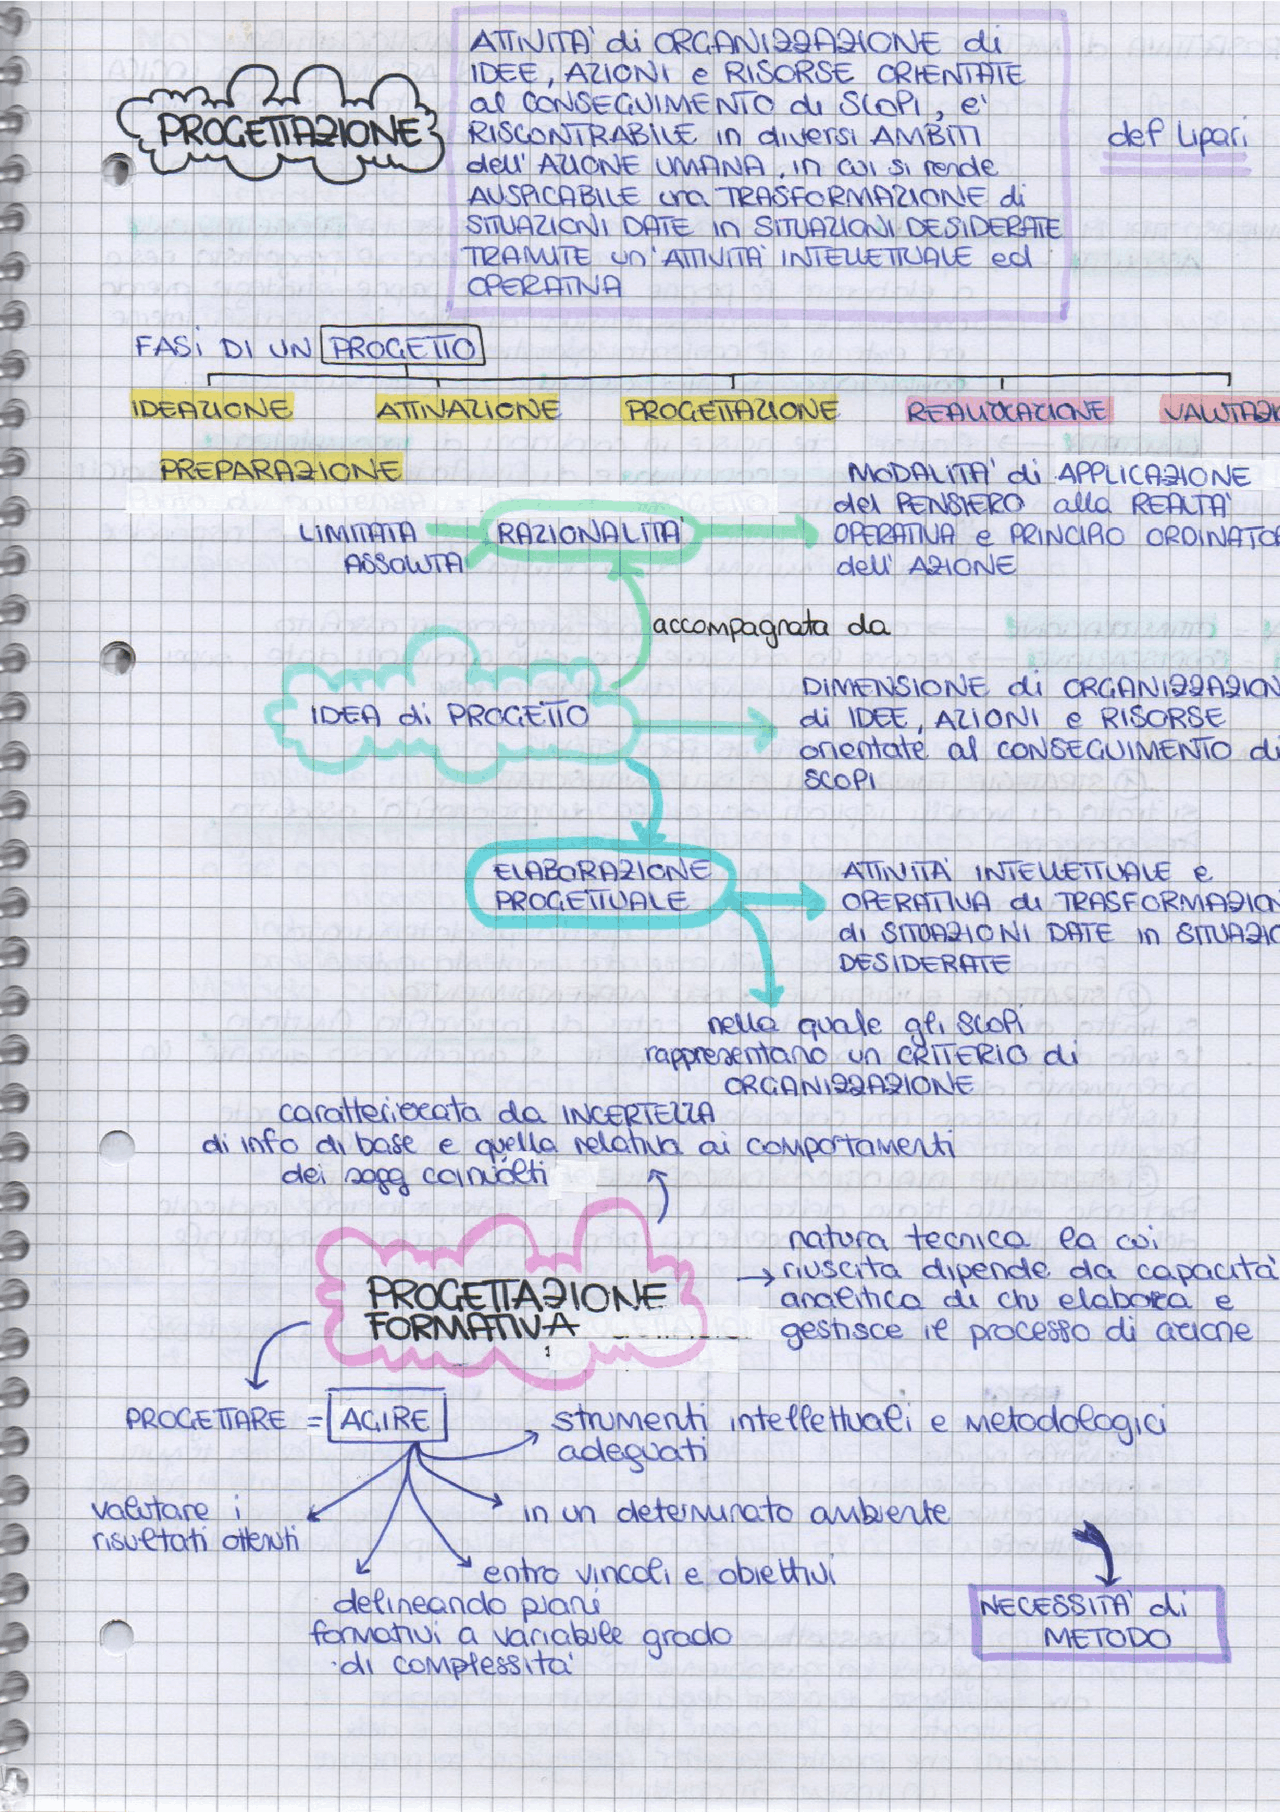 PROGETTAZIONE
ATTIVITA' di ORGANIZZAZIONE di
IDEE, AZIONI e RISORSE ORIENTATE
al CONSEGUIMENTO di SCOPI, e'
RISCONTRABILE in diversi AMBITI
dell'AZIONE UMANA, in cui si rende
AUSPICABILE una TRASFORMAZIONE di
SITUAZIONI DATE in SITUAZIONI DESIDERATE
TRAMITE un'ATTIVITA' INTELLETTUALE ed
OPERATIVA
def Lipari
FASI DI UN PROGETTO
IDEAZIONE ATTIVAZIONE PROGETTAZIONE REALIZZAZIONE VALUTAZI
PREPARAZIONE
LIMITATA
ASSOLUTA
RAZIONALITA'
MODALITA' di APPLICAZIONE
del PENSIERO alla REALTA'
OPERATIVA e PRINCIPIO ORDINATO
dell'AZIONE
accompagnata da
IDEA di PROGETTO
DIMENSIONE di ORGANIZZAZION
di IDEE, AZIONI e RISORSE
orientate al CONSEGUIMENTO di
SCOPI
ELABORAZIONE
PROGETTUALE
ATTIVITA' INTELLETTUALE e
OPERATIVA di TRASFORMAZION
di SITUAZIONI DATE in SITUAZIO
DESIDERATE
nella quale gli SCOPI
rappresentano un CRITERIO di
ORGANIZZAZIONE
caratterizzata da INCERTEZZA
di info di base e quella relativa ai comportamenti
dei sogg coinvolti
PROGETTAZIONE
FORMATIVA
natura tecnica la cui
riuscita dipende da capacità
analitica di chi elabora e
gestisce il processo di azione
PROGETTARE = AGIRE
strumenti intellettuali e metodologici
adeguati
valutare i
risultati ottenuti
in un determinato ambiente
entro vincoli e obiettivi
delineando piani
formativi a variabile grado
di complessità
NECESSITA' di
METODO